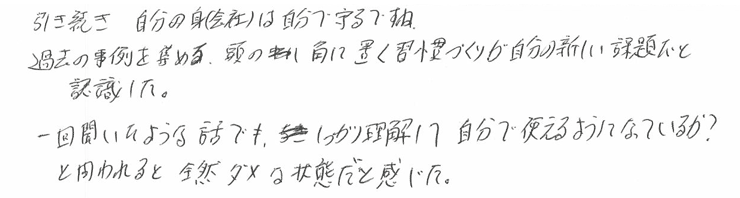 引き続き 自分の身(会社)は自分で守るですね.
過去の事例を集める. 頭の片角に置く習慣づくりが自分の新しい課題だと
認識した。
一回聞いたような話でも、しっかり理解して自分で使えるようになっているか?
と問われると全然ダメな状態だと感じた。